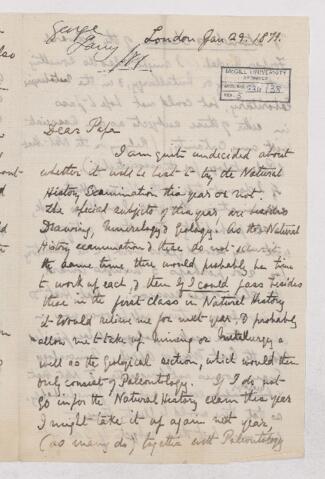 George
London Jan 29. 1871.
McGILL UNIVERSITY
ARCHIVES
Dear Papa
I am quite undecided about
whether it will be best to try the Natural
History Examination this year or not.
The special subjects of this year are besides
Drawing, Mineralogy & Geology. As the Natural
History examination & these do not
the same time there would probably be time
to work up each, & then if I could pass besides
these in the first class in Natural History
it would relieve me for next year & probably
allow me to take up Mining or Metallurgy as
well as the Geological section, which would then
only consist of Paleontology. If I do not
go in for the Natural History exam this year
I might take it up again next year,
(as many do) together with Paleontology